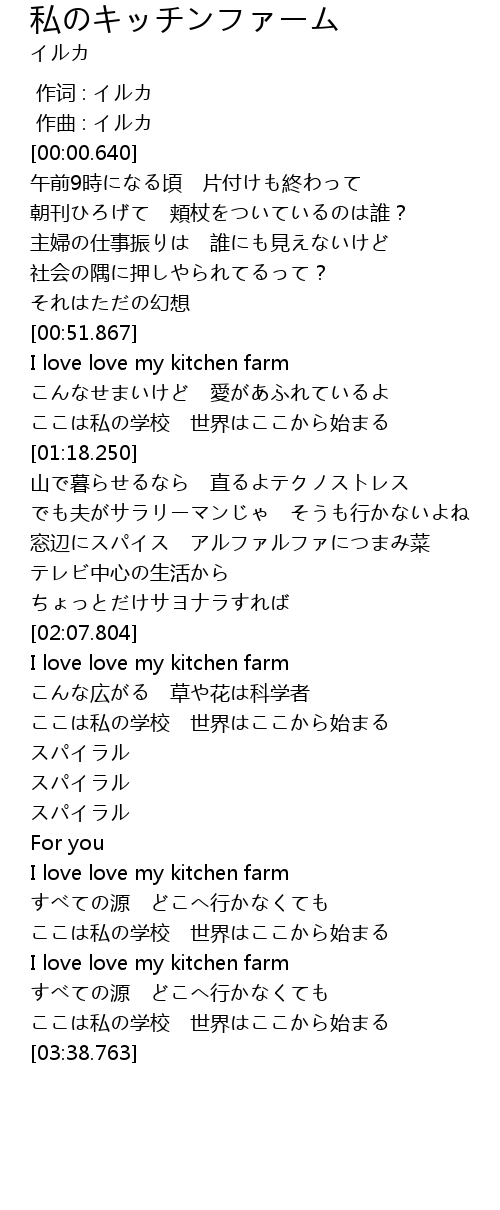 私のキッチンファーム
イルカ
作词 : イルカ
作曲 : イルカ
[00:00.640]
午前9時になる頃　片付けも終わって
朝刊ひろげて　頬杖をついているのは誰？
主婦の仕事振りは　誰にも見えないけど
社会の隅に押しやられてるって？
それはただの幻想
[00:51.867]
I love love my kitchen farm
こんなせまいけど　愛があふれているよ
ここは私の学校　世界はここから始まる
[01:18.250]
山で暮らせるなら　直るよテクノストレス
でも夫がサラリーマンじゃ　そうも行かないよね
窓辺にスパイス　アルファルファにつまみ菜
テレビ中心の生活から
ちょっとだけサヨナラすれば
[02:07.804]
I love love my kitchen farm
こんな広がる　草や花は科学者
ここは私の学校　世界はここから始まる
スパイラル
スパイラル
スパイラル
For you
I love love my kitchen farm
すべての源　どこへ行かなくても
ここは私の学校　世界はここから始まる
I love love my kitchen farm
すべての源　どこへ行かなくても
ここは私の学校　世界はここから始まる
[03:38.763]